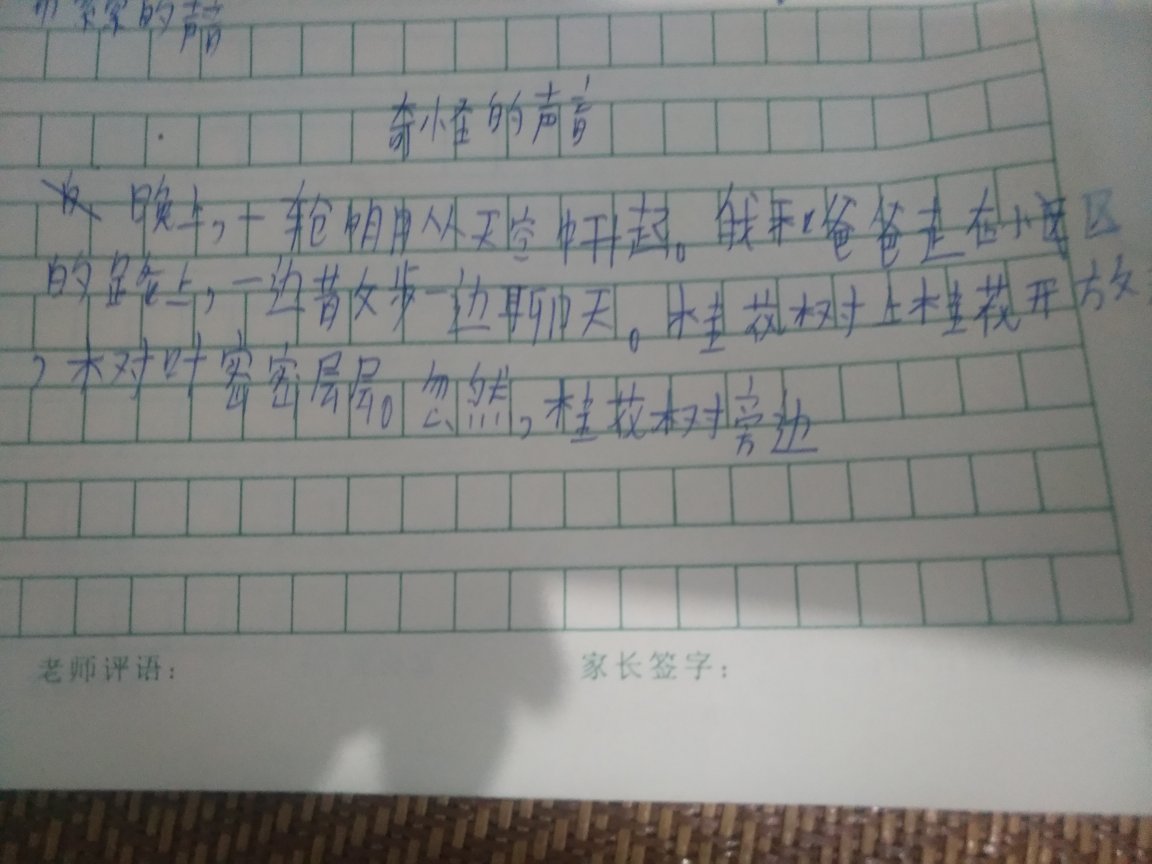 的声音
奇怪的声音
晚上,一轮明月从天空中升起。我和爸爸走在小区
的路上,一边散步一边聊天。桂花树上桂花开放
,树叶密密层层。忽然,桂花树旁边
老师评语: 家长签字: